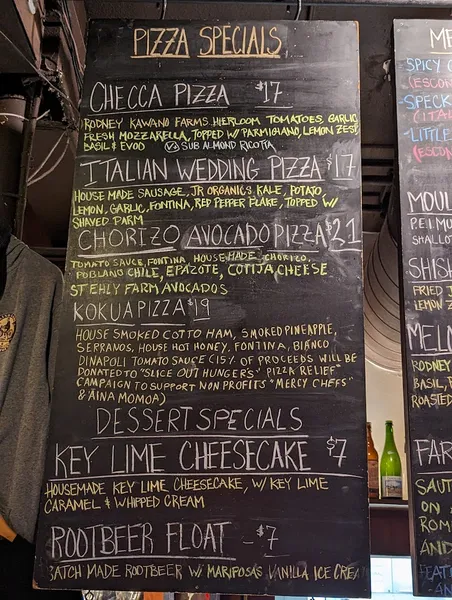 PIZZA SPECIALS
CHECCA PIZZA $17
RODNEY KAWANO FARMS HIERLOOM TOMATOES, GARLIC
FRESH MOZZARELLA, TOPPED W/ PARMIGIANO, LEMON ZEST
BASIL & EVOO SUB ALMOND RICOTTA
ITALIAN WEDDING PIZZA $17
HOUSE MADE SAUSAGE, JR ORGANICS KALE, POTATO,
LEMON, GARLIC, FONTINA, RED PEPPER FLAKE, TOPPED W/
SHAVED PARM
CHORIZO AVOCADO PIZZA $21
TOMATO SAUCE, FONTINA HOUSE MADE CHORIZO,
POBLANO CHILE, EPAZOTE, COTIJA CHEESE
STEHLY FARM AVOCADOS
KOKUA PIZZA $19
HOUSE SMOKED COTTO HAM, SMOKED PINEAPPLE,
SERRANOS, HOUSE HOT HONEY, FONTINA, BIANCO
DINAPOLI TOMATO SAUCE (15% OF PROCEEDS WILL BE
DONATED TO "SLICE OUT HUNGER'S" PIZZA RELIEF"
CAMPAIGN TO SUPPORT NON PROFITS "MERCY CHEFS"
& AINA MOMOA)
DESSERT SPECIALS
KEY LIME CHEESECAKE $7
HOUSEMADE KEY LIME CHEESECAKE, W/ KEY LIME
CARAMEL & WHIPPED CREAM
ROOTBEER FLOAT - $7
BATCH MADE ROOTBEER W/ MARIPOSAS VANILLA ICE CREA
ME
SPICY
(ESCON
SPECK
(ITA
-LITTLE
(ESCON
MOUL
P.E.I MU
SHALLO
SHISH
FRIED
LEMON Z
MELO
RODNEY
BASIL,
ROASTED
FAR
SAUT
ON
ROM
AND
FEAT
-AN